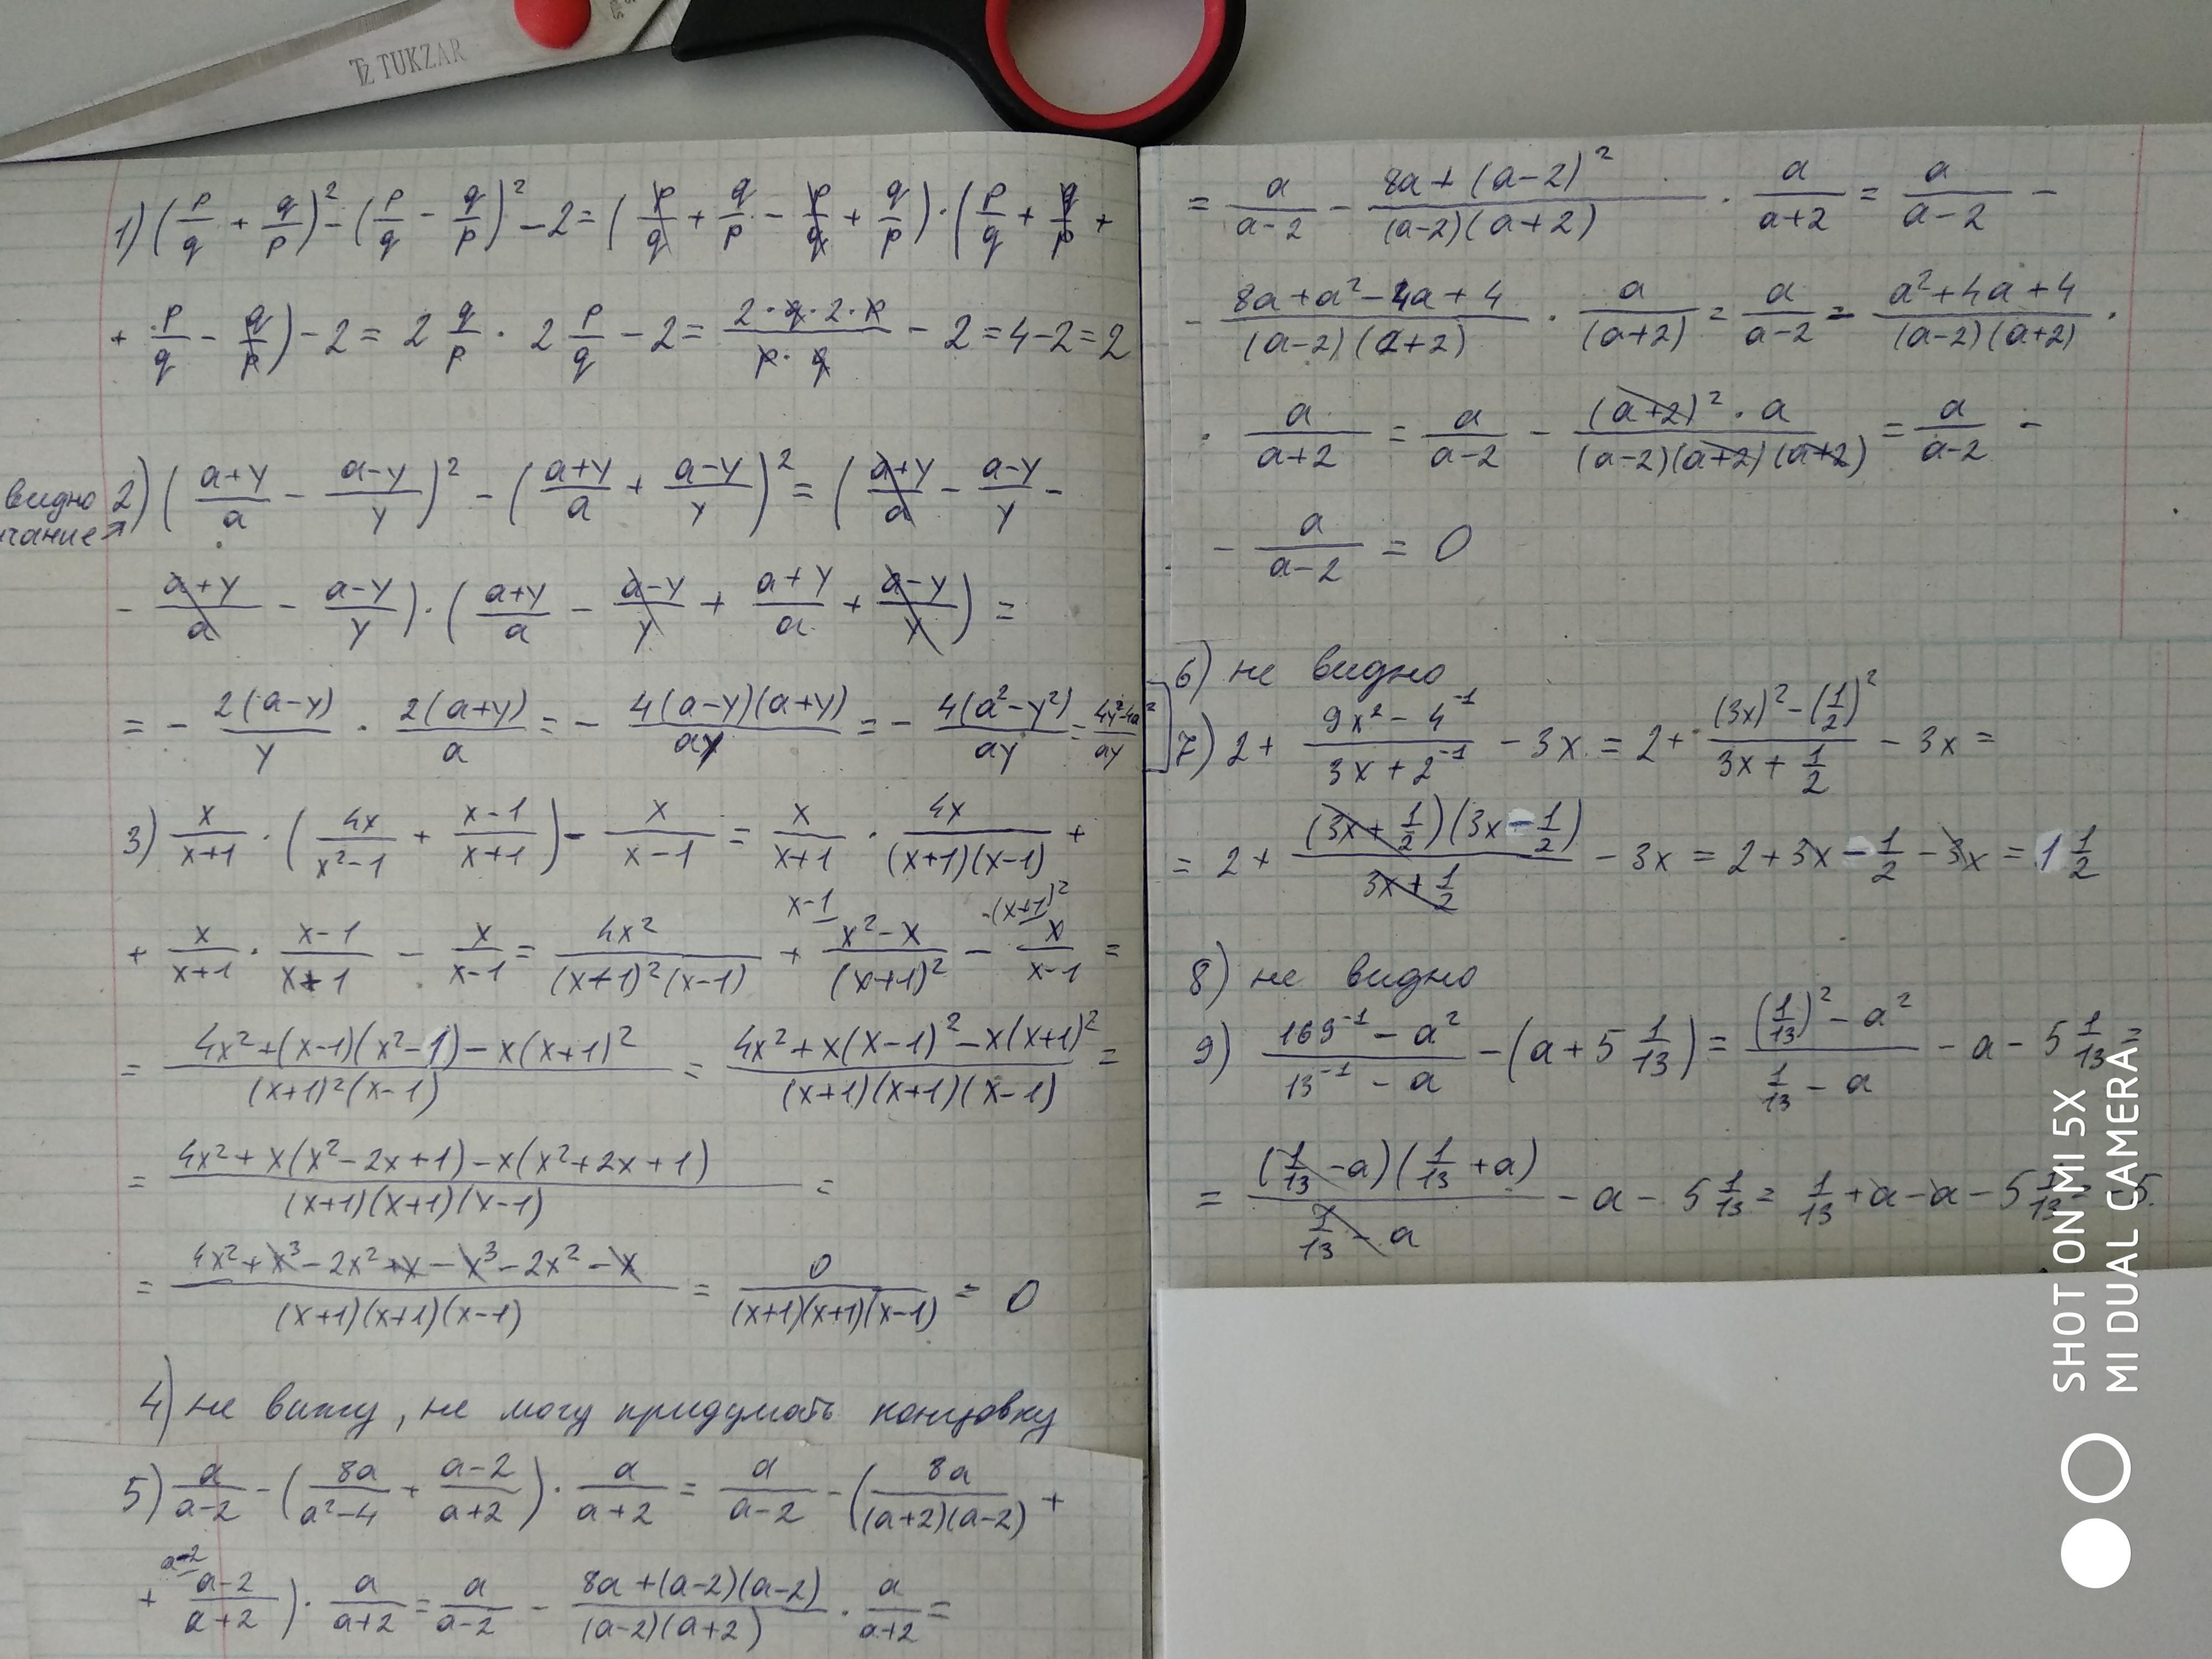 TUKZAR
1) (p/q + q/p)² - (p/q - q/p)² - 2 = (p/q + q/p - p/q + q/p) · (p/q + q/p +
+ p/q - q/p) - 2 = 2 q/p · 2 p/q - 2 = (2·q·2·p)/(p·q) - 2 = 4-2 = 2
видно
2) ((a+y)/a - (a-y)/y)² - ((a+y)/a + (a-y)/y)² = ((a+y)/a - (a-y)/y -
- (a+y)/a - (a-y)/y) · ((a+y)/a - (a-y)/y + (a+y)/a + (a-y)/y) =
= - 2(a-y)/y · 2(a+y)/a = - 4(a-y)(a+y)/ay = - 4(a²-y²)/ay = (4y²-4a²)/ay
3) x/(x+1) · (4x/(x²-1) + (x-1)/(x+1)) - x/(x-1) = x/(x+1) · 4x/((x+1)(x-1)) +
x-1 -(x+1)²
+ x/(x+1) · (x-1)/(x+1) - x/(x-1) = 4x²/((x+1)²(x-1)) + (x²-x)/(x+1)² - x/(x-1) =
= (4x²+(x-1)(x²-1)-x(x+1)²)/((x+1)²(x-1)) = (4x²+x(x-1)²-x(x+1)²)/((x+1)(x+1)(x-1)) =
= (4x²+x(x²-2x+1)-x(x²+2x+1))/((x+1)(x+1)(x-1)) =
= (4x²+x³-2x²+x-x³-2x²-x)/((x+1)(x+1)(x-1)) = 0/((x+1)(x+1)(x-1)) = 0
4) не вижу, не могу придумать концовку
5) a/(a-2) - (8a/(a²-4) + (a-2)/(a+2)) · a/(a+2) = a/(a-2) - (8a/((a+2)(a-2)) +
a-2
+ (a-2)/(a+2)) · a/(a+2) = a/(a-2) - (8a+(a-2)(a-2))/((a-2)(a+2)) · a/(a+2) =
= a/(a-2) - (8a+(a-2)²)/((a-2)(a+2)) · a/(a+2) = a/(a-2) -
- (8a+a²-4a+4)/((a-2)(a+2)) · a/(a+2) = a/(a-2) - (a²+4a+4)/((a-2)(a+2)) ·
· a/(a+2) = a/(a-2) - ((a+2)²·a)/((a-2)(a+2)(a+2)) = a/(a-2) -
- a/(a-2) = 0
6) не видно
7) 2 + (9x²-4⁻¹)/(3x+2⁻¹) - 3x = 2 + ((3x)²-(1/2)²)/(3x+1/2) - 3x =
= 2 + ((3x+1/2)(3x-1/2))/(3x+1/2) - 3x = 2+3x-1/2-3x = 1 1/2
8) не видно
9) (169⁻¹-a²)/(13⁻¹-a) - (a+5 1/13) = ((1/13)²-a²)/(1/13-a) - a - 5 1/13 =
= ((1/13-a)(1/13+a))/(1/13-a) - a - 5 1/13 = 1/13+a-a-5 1/13 = 5
SHOT ON MI 5X
MI DUAL CAMERA